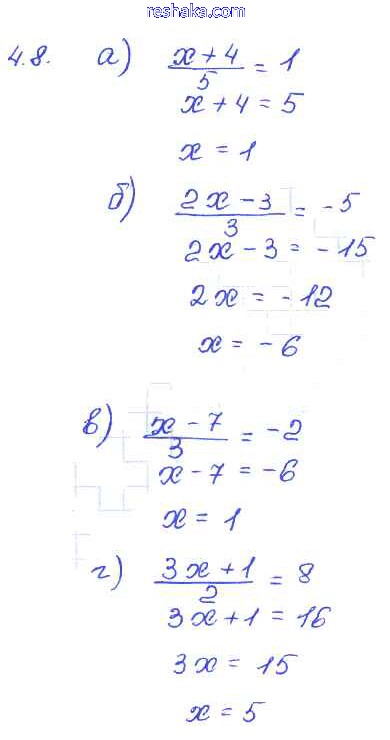 www.reshaka.com
4.8. а) (x + 4)/5 = 1
x + 4 = 5
x = 1
б) (2x - 3)/3 = -5
2x - 3 = -15
2x = -12
x = -6
в) (x - 7)/3 = -2
x - 7 = -6
x = 1
г) (3x + 1)/2 = 8
3x + 1 = 16
3x = 15
x = 5